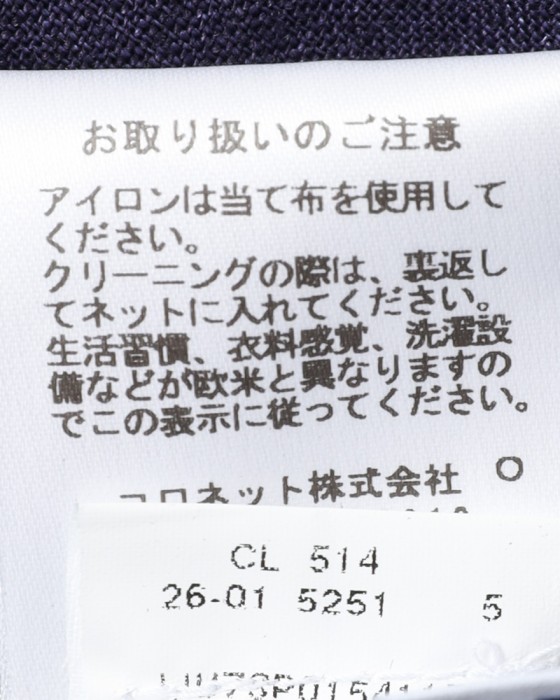 お取り扱いのご注意
アイロンは当て布を使用して
ください。
クリーニングの際は、裏返し
てネットに入れてください。
生活習慣、衣料感覚、洗濯設
備などが欧米と異なりますの
でこの表示に従ってください。
コロネット株式会社
CL 514
26-01 5251 5